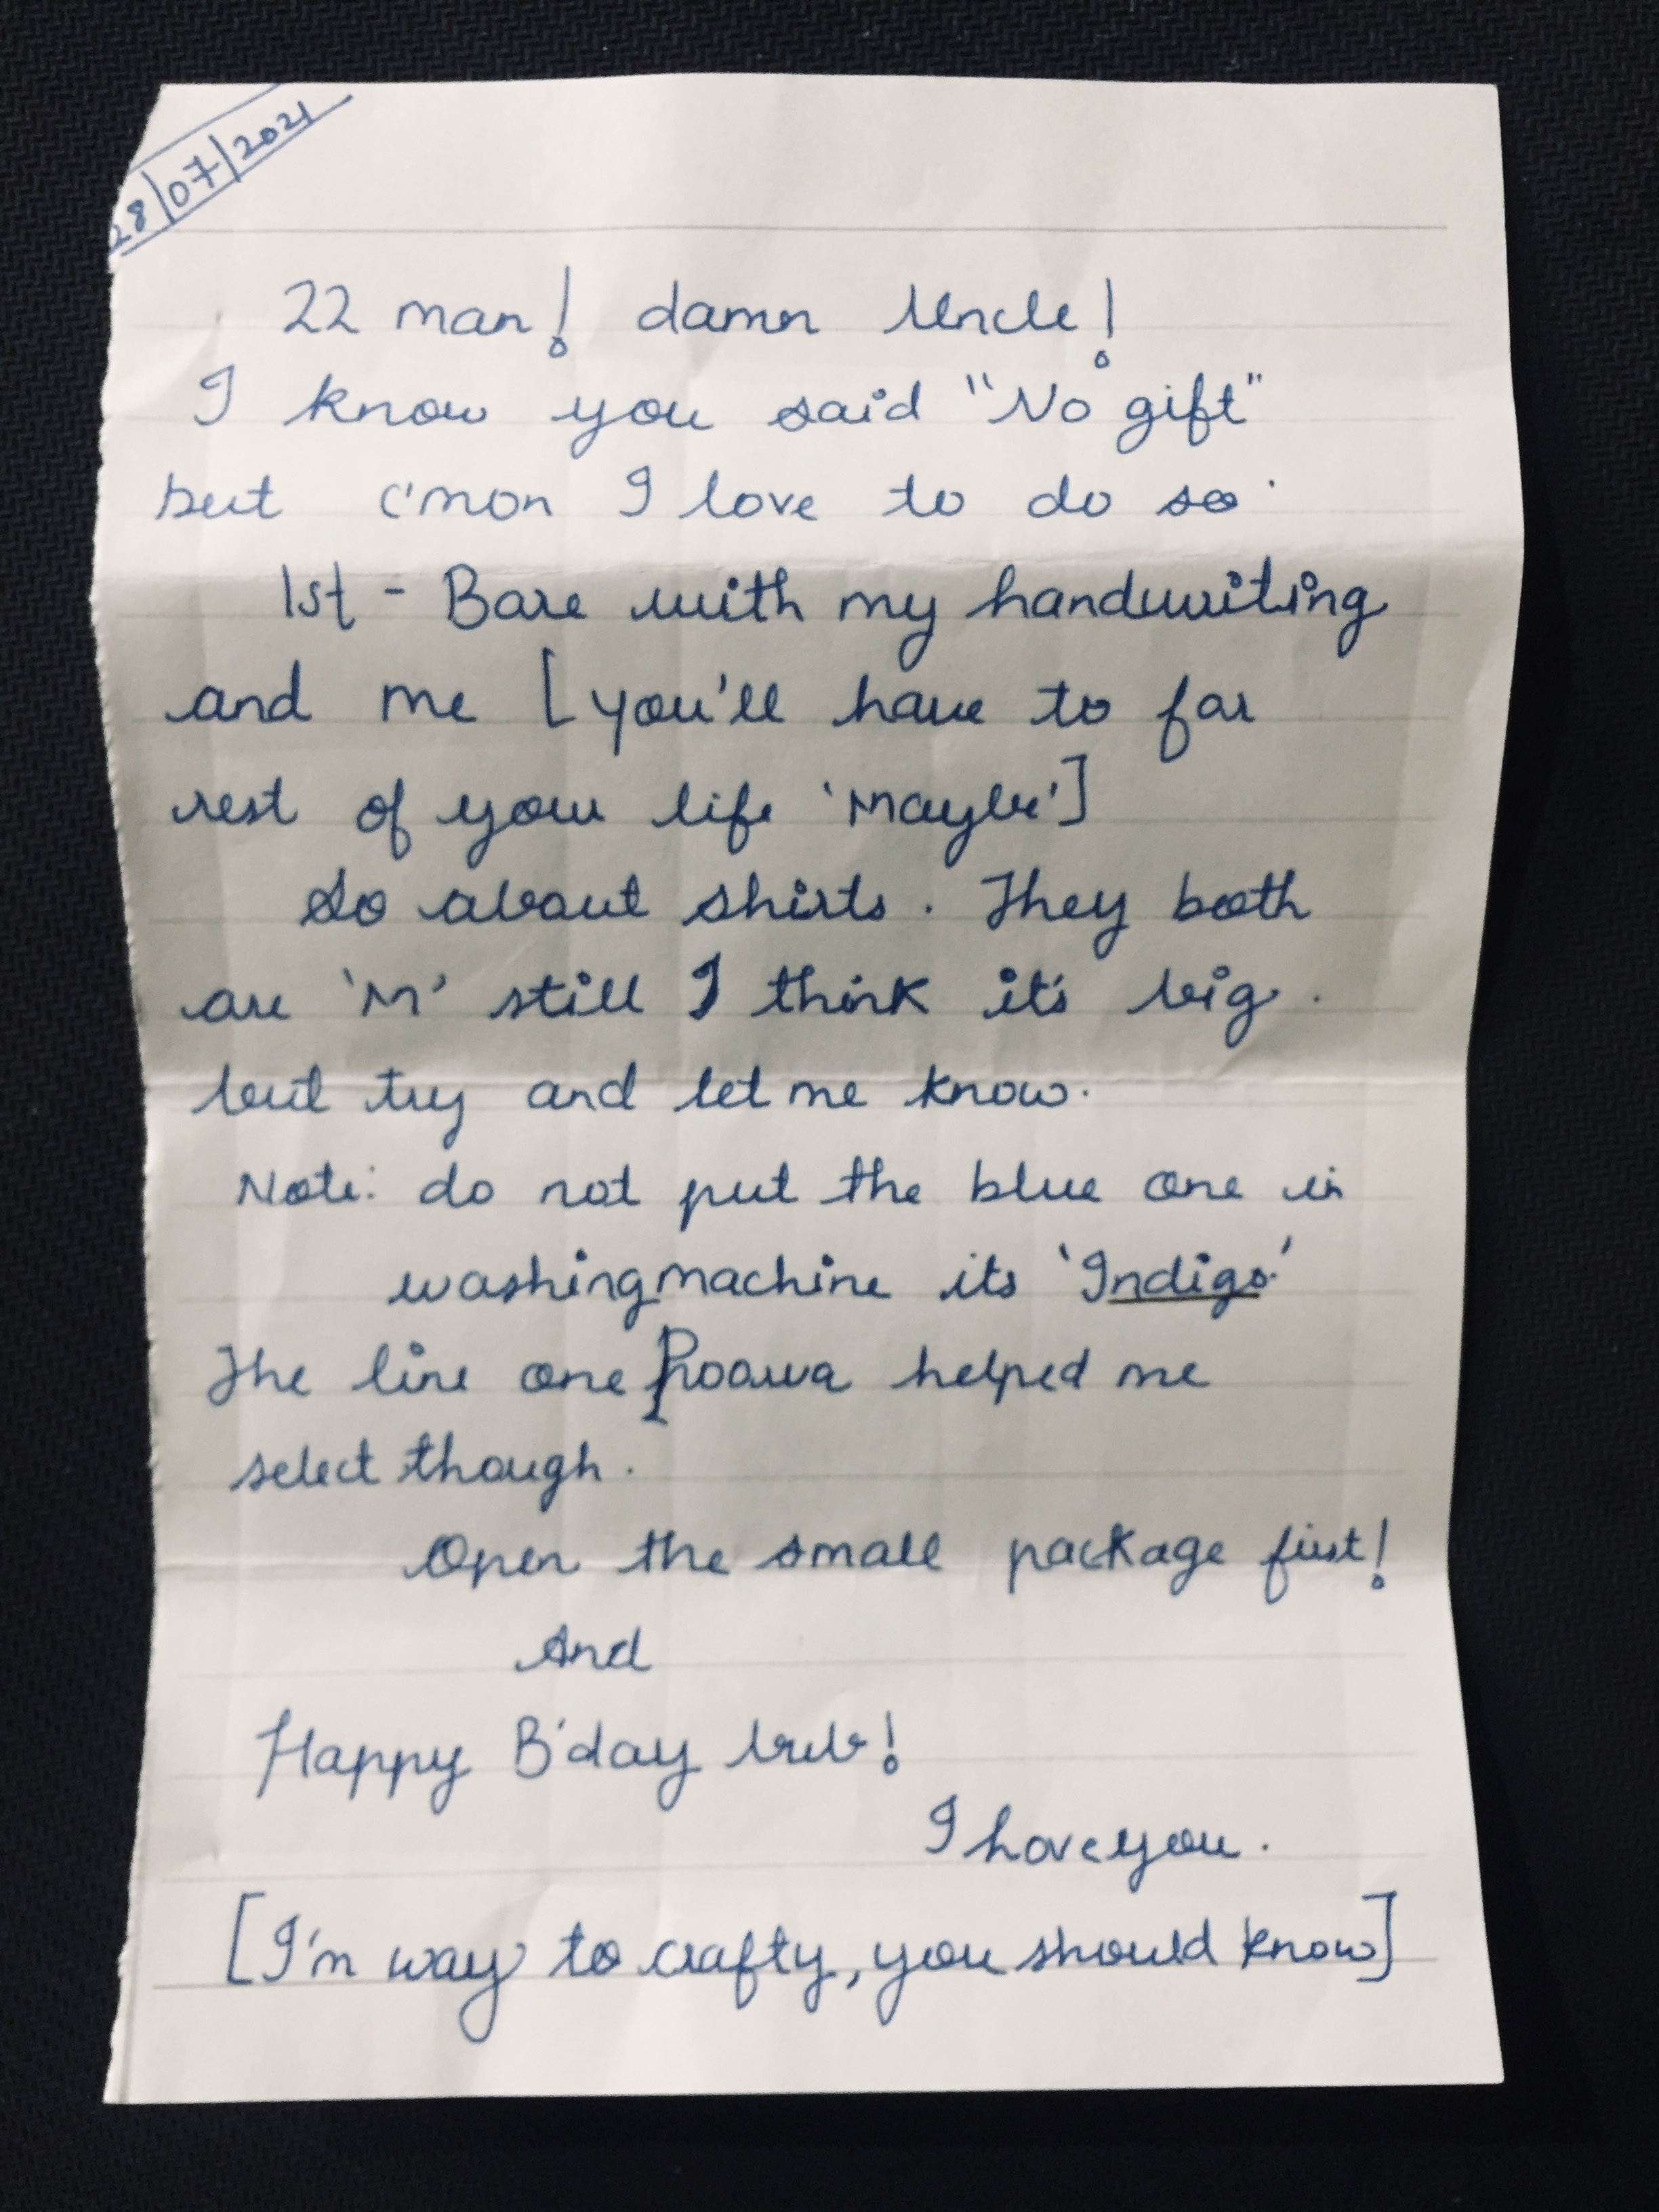 28/07/2021
22 man! damn Uncle!
I know you said "No gift"
but c'mon I love to do so.
1st - Bare with my handwriting
and me [you'll have to for
rest of your life 'Maybe']
So about shirts. They both
are 'M' still I think it's big.
but try and let me know.
Note: do not put the blue one in
washing machine its 'Indigo'
The line one helped me
select though.
Open the small package first!
And
Happy B'day bub!
I Love you.
[I'm way to crafty, you should know]